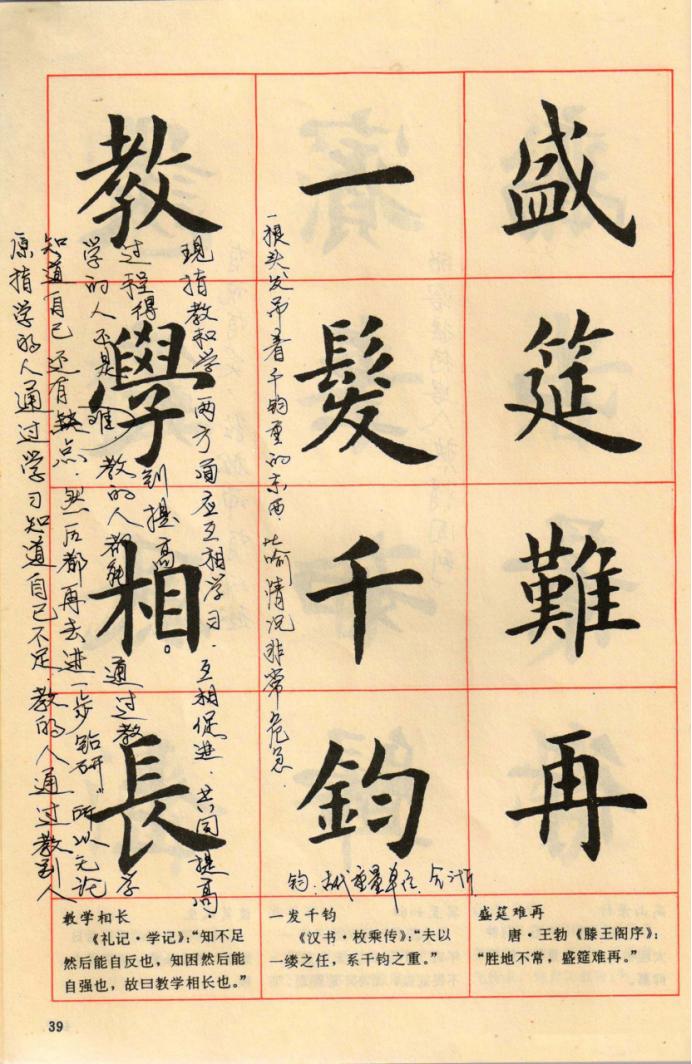 盛筵難再
一髮千鈞
一根头发吊着千钧重的东西.比喻情况非常危急.
钧.古代重量单位.
教學相長
原指学的人通过学习知道自己不足.教的人通过教别人
知道自己还有缺点.然后都再去进一步钻研"所以无论
学的人还是教的人都能通过教学
过程得到提高。
现指教和学两方面应互相学习.互相促进.共同提高
教学相长
《礼记·学记》:“知不足
然后能自反也，知困然后能
自强也，故曰教学相长也。”
一发千钧
《汉书·枚乘传》:“夫以
一缕之任，系千钧之重。”
盛筵难再
唐·王勃《滕王阁序》:
“胜地不常，盛筵难再。”
39